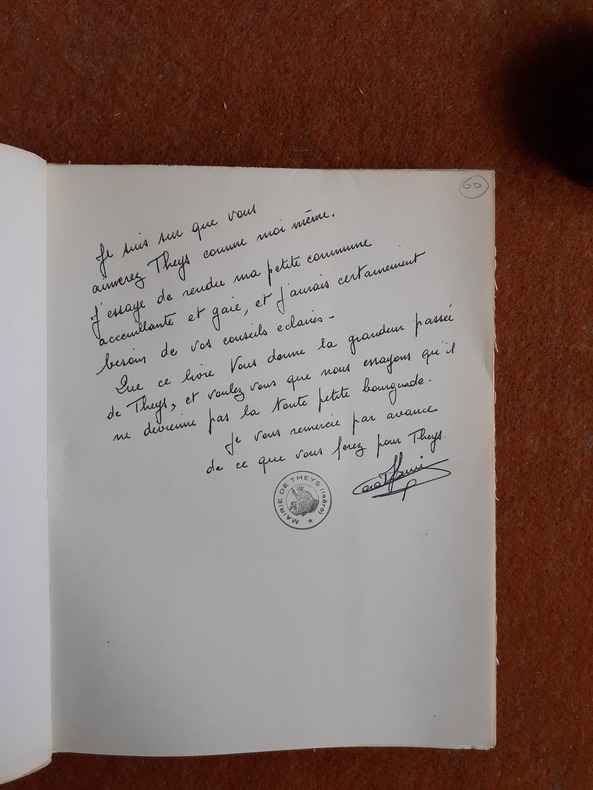 60
Je suis sur que vous
aimerez Theys comme moi même.
J'essaye de rendre ma petite commune
acceuillante et gaie, et j'aurais certainement
besoin de vos conseils eclairés -
Que ce livre vous donne la grandeur passée
de Theys, et voulez vous que nous essayons qu'il
ne devienne pas la toute petite bourguade.
Je vous remercie par avance
de ce que vous ferez pour Theys.
MAIRIE DE THEYS (Isère)